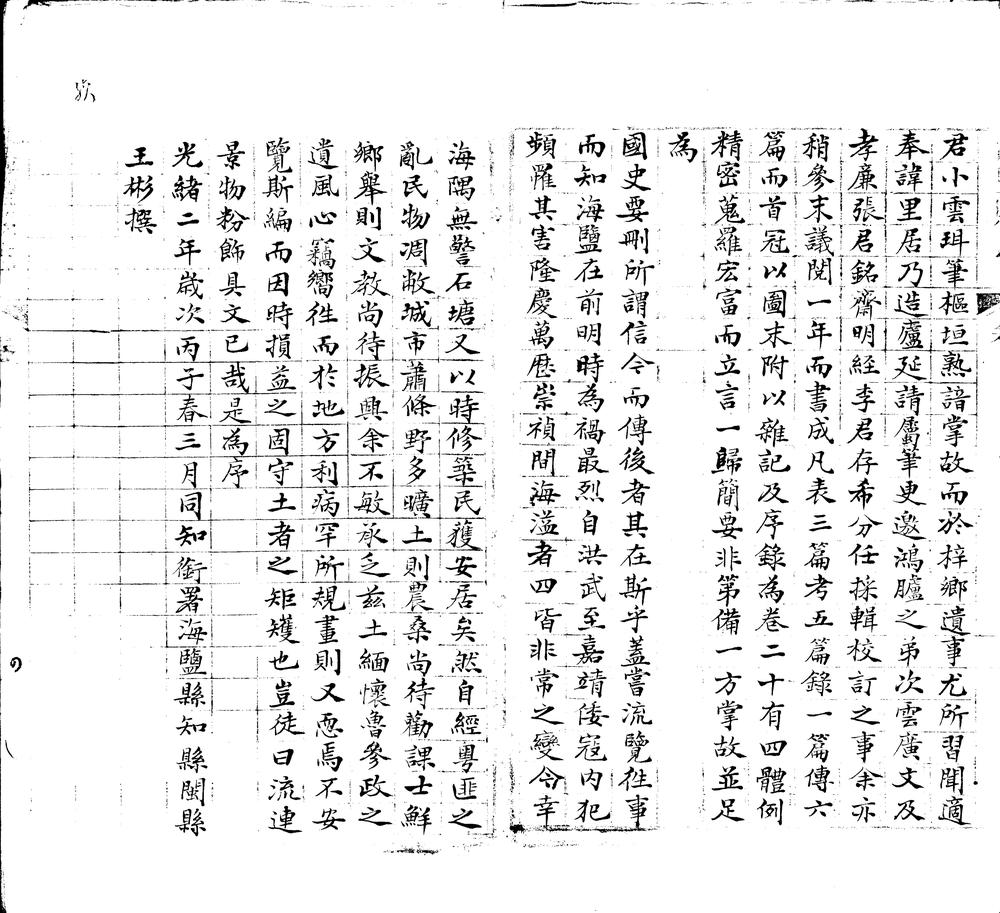 君小雲珥筆樞垣熟諳掌故而於梓鄉遺事尤所習聞適
奉諱里居乃造廬延請屬筆更邀鴻臚之弟次雲廣文及
孝廉張君銘齋明經李君存希分任採輯校訂之事余亦
稍參末議閱一年而書成凡表三篇考五篇錄一篇傳六
篇而首冠以圖末附以雜記及序錄為卷二十有四體例
精密蒐羅宏富而立言一歸簡要非第備一方掌故並足
為
國史要刪所謂信今而傳後者其在斯乎蓋嘗流覽徃事
而知海鹽在前明時為禍最烈自洪武至嘉靖倭寇內犯
頻罹其害隆慶萬歷崇禎間海溢者四皆非常之變今幸
海隅無警石塘又以時修築民獲安居矣然自經粵匪之
亂民物凋敝城市蕭條野多曠土則農桑尚待勸課士鮮
鄉舉則文教尚待振興余不敏承乏茲土緬懷魯參政之
遺風心竊嚮徃而於地方利病罕所規畫則又恧焉不安
覽斯編而因時損益之固守土者之矩矱也豈徒曰流連
景物粉飾具文已哉是為序
光緒二年歲次丙子春三月同知銜署海鹽縣知縣閩縣
王彬撰